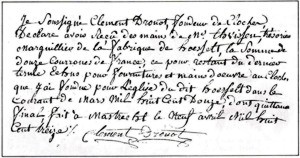 Je Soussigné Clement Drouot fondeur de Cloches
Declare avoir Reçu des mains de Mr. Thésorier
marguillier de la fabrique de hoesselt, la Somme de
Douze Couronnes de france; ce pour restant du dernier
terme Echus pour fournitures et mains d'oeuvre au Cloches
que j'ai fondue pour L'eglise du dit hoesselt dans le
courant de Mars Mil huit Cent Douze, dont quittance
finale fait a Mastrecht le Neuf avril Mil huit
Cent treize /.
Clement Drouot